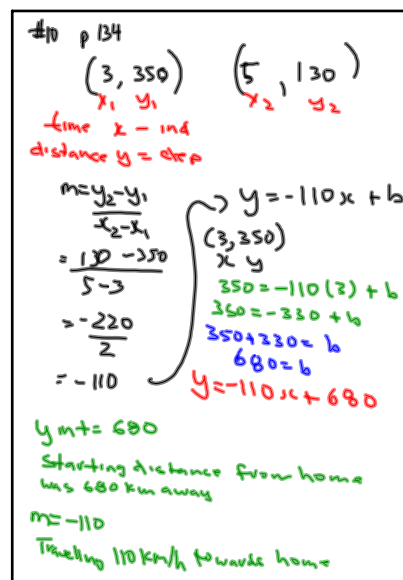 #10 p 134
(3, 350) (5, 130)
x₁ y₁ x₂ y₂
time x - ind
distance y = dep
m = y₂-y₁
x₂-x₁
= 130 - 350
5-3
= -220
2
= -110
y = -110x + b
(3, 350)
x y
350 = -110(3) + b
350 = -330 + b
350+330 = b
680 = b
y = -110x + 680
y int = 680
Starting distance from home
was 680 km away
m = -110
Traveling 110 km/h towards home